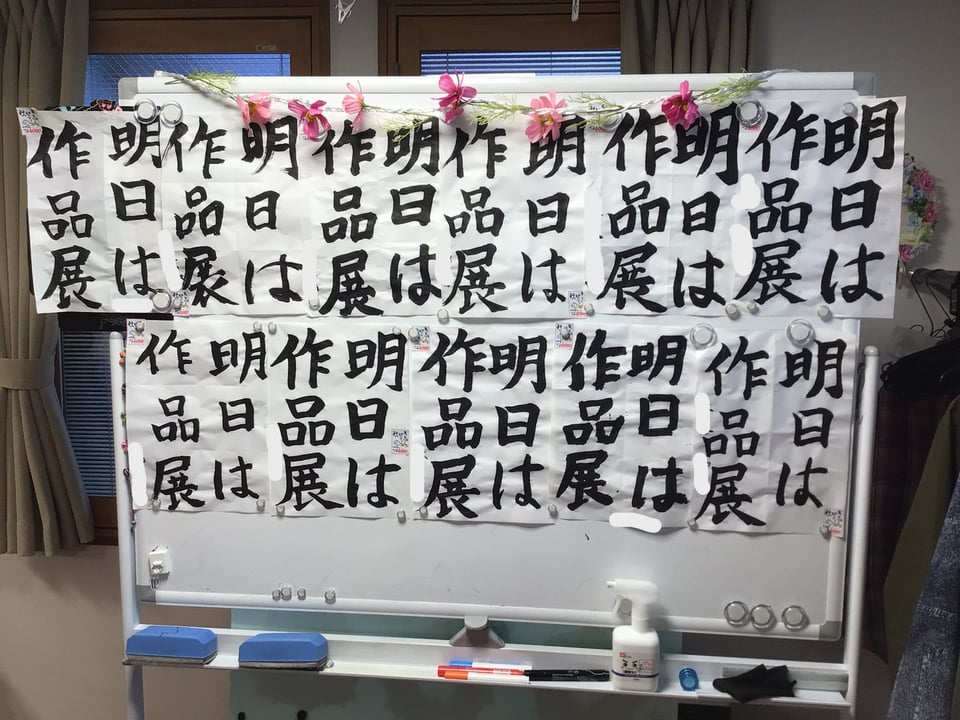 明日は
作品展
明日は
作品展
明日は
作品展
明日は
作品展
明日は
作品展
明日は
作品展
明日は
作品展
明日は
作品展
明日は
作品展
明日は
作品展
明日は
作品展